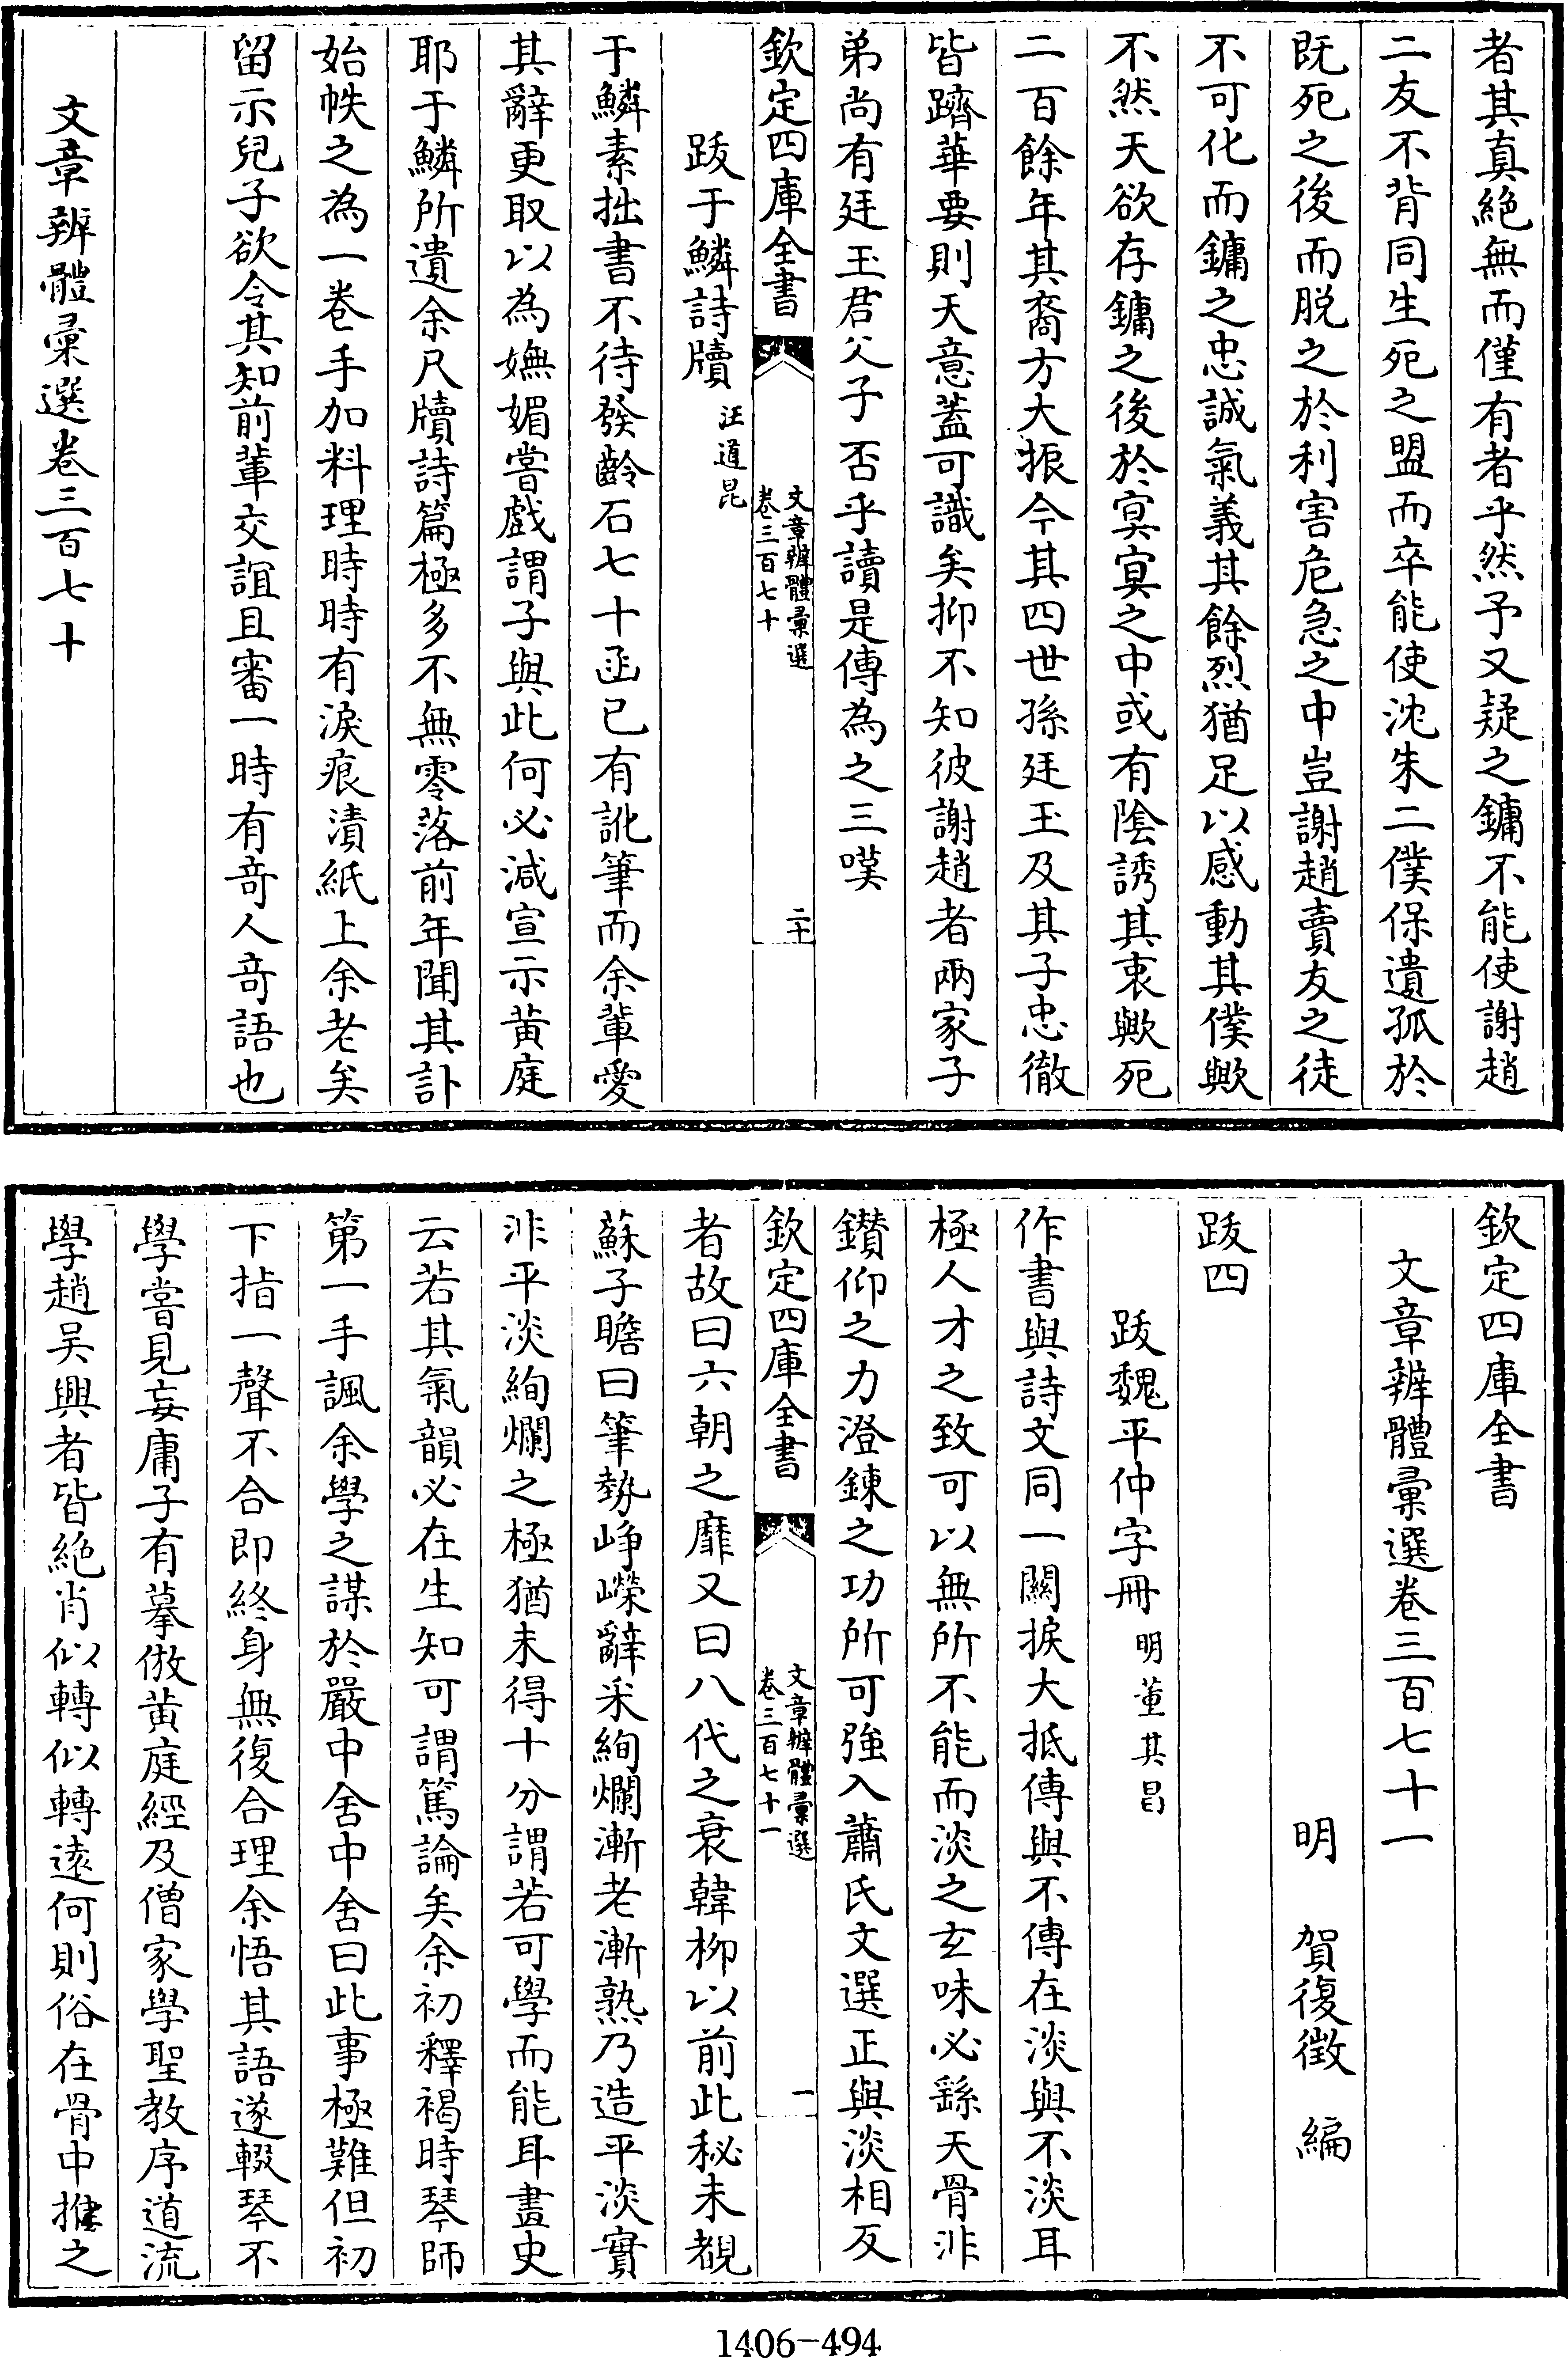 者其真絶無而僅有者乎然予又疑之鏞不能使謝趙
二友不背同生死之盟而卒能使沈朱二僕保遺孤於
既死之後而脱之於利害危急之中豈謝趙賣友之徒
不可化而鏞之忠誠氣義其餘烈猶足以感動其僕歟
不然天欲存鏞之後於冥冥之中或有陰誘其衷歟死
二百餘年其裔方大振今其四世孫廷玉及其子忠徹
皆躋華要則天意蓋可識矣抑不知彼謝趙者兩家子
弟尚有廷玉君父子否乎讀是傳為之三嘆
欽定四庫全書
文章辨體彙選
卷三百七十
二十
跋于鱗詩牘 汪道昆
于鱗素拙書不待發齡石七十函已有訛筆而余輩愛
其辭更取以為嫵媚嘗戲謂子與此何必減宣示黄庭
耶于鱗所遺余尺牘詩篇極多不無零落前年聞其訃
始帙之為一卷手加料理時時有淚痕漬紙上余老矣
留示兒子欲令其知前輩交誼且審一時有竒人竒語也
文章辨體彙選卷三百七十
欽定四庫全書
文章辨體彙選卷三百七十一
明 賀復徴 編
跋四
跋魏平仲字冊 明董其昌
作書與詩文同一關捩大抵傳與不傳在淡與不淡耳
極人才之致可以無所不能而淡之玄味必繇天骨非
鑽仰之力澄鍊之功所可強入蕭氏文選正與淡相反
欽定四庫全書
文章辨體彙選
卷三百七十一
一
者故曰六朝之靡又曰八代之衰韓柳以前此秘未覩
蘇子瞻曰筆勢崢嶸辭采絢爛漸老漸熟乃造平淡實
非平淡絢爛之極猶未得十分謂若可學而能耳畫史
云若其氣韻必在生知可謂篤論矣余初釋褐時琴師
第一手諷余學之謀於嚴中舍中舍曰此事極難但初
下指一聲不合即終身無復合理余悟其語遂輟琴不
學嘗見妄庸子有摹倣黄庭經及僧家學聖教序道流
學趙吴興者皆絶肖似轉似轉逺何則俗在骨中推之
1406-494